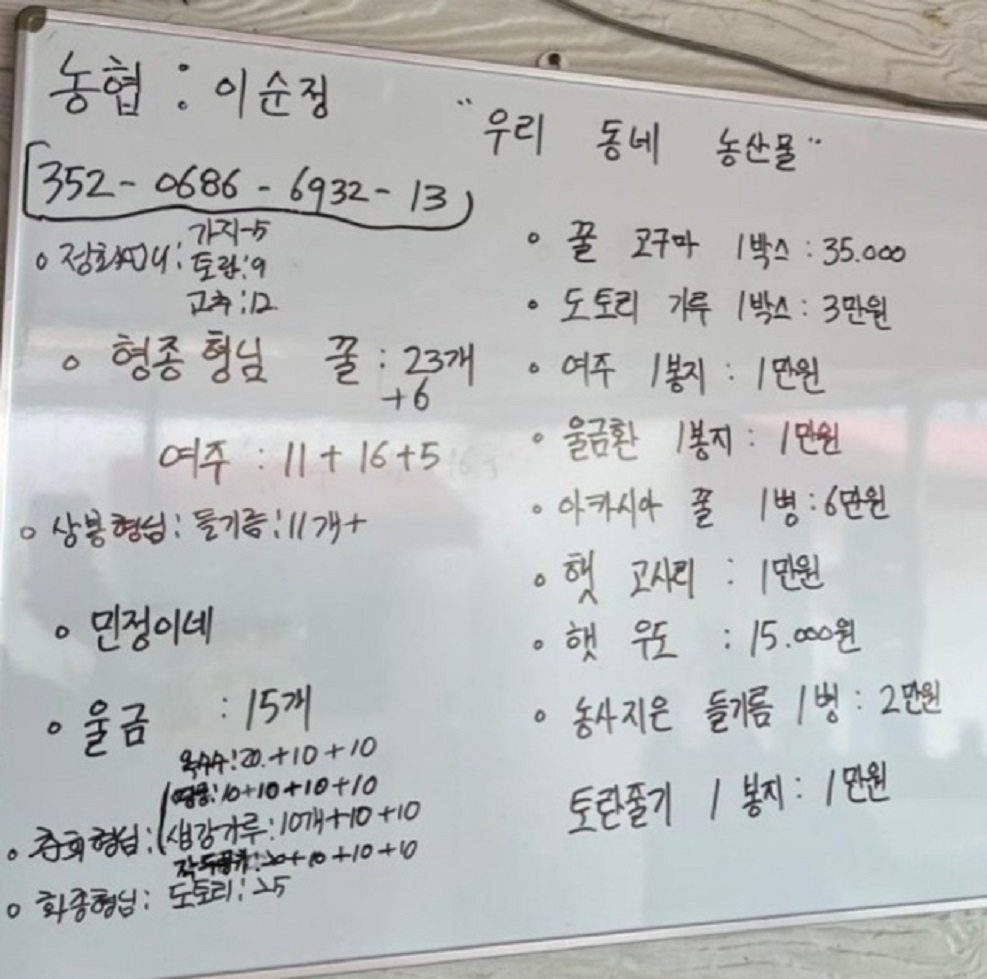 농협 : 이순정
352-0686-6932-13
정화언니 : 가지-5
토란 : 9
고추 : 12
형종 형님 꿀 : 23개
+6
여주 : 11 + 16 + 5
상봉형님 : 들기름 : 11개+
민정이네
울금 : 15개
옥수수 : 20 + 10 + 10
: 10 + 10 + 10 + 10
형님 : 생강가루 : 10개 + 10 + 10
: 20 + 10 + 10 + 10
화종형님 : 도토리 : 25
"우리 동네 농산물"
꿀 고구마 1박스 : 35.000
도토리 가루 1박스 : 3만원
여주 1봉지 : 1만원
울금환 1봉지 : 1만원
아카시아 꿀 1병 : 6만원
햇 고사리 : 1만원
햇 우도 : 15.000원
농사지은 들기름 1병 : 2만원
토란줄기 1 봉지 : 1만원